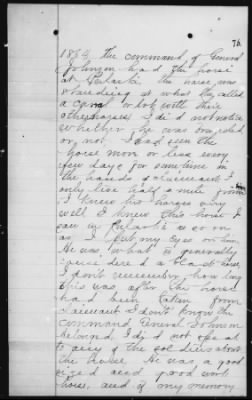 75
1863, the command of General
Johnson had the horse
at Pulaski the horse was
standing at what they called
a corral with their
other horses I did not notice
whether he was branded
or not. I had seen the
horse more or less every
few days for sometime in
the hands of claimant I
only live half a mile from
I knew his horses very
well I knew this horse I
saw in Pulaski as soon
as I put my eyes on him,
He was what is generally
considered a
I don't remember how long
this was after the horse
had been taken from
claimant I don't know the
command General Johnson
belonged, I did not speak
to any of the soldiers about
the horse. He was a good
sized and good work
horse, and if my memory